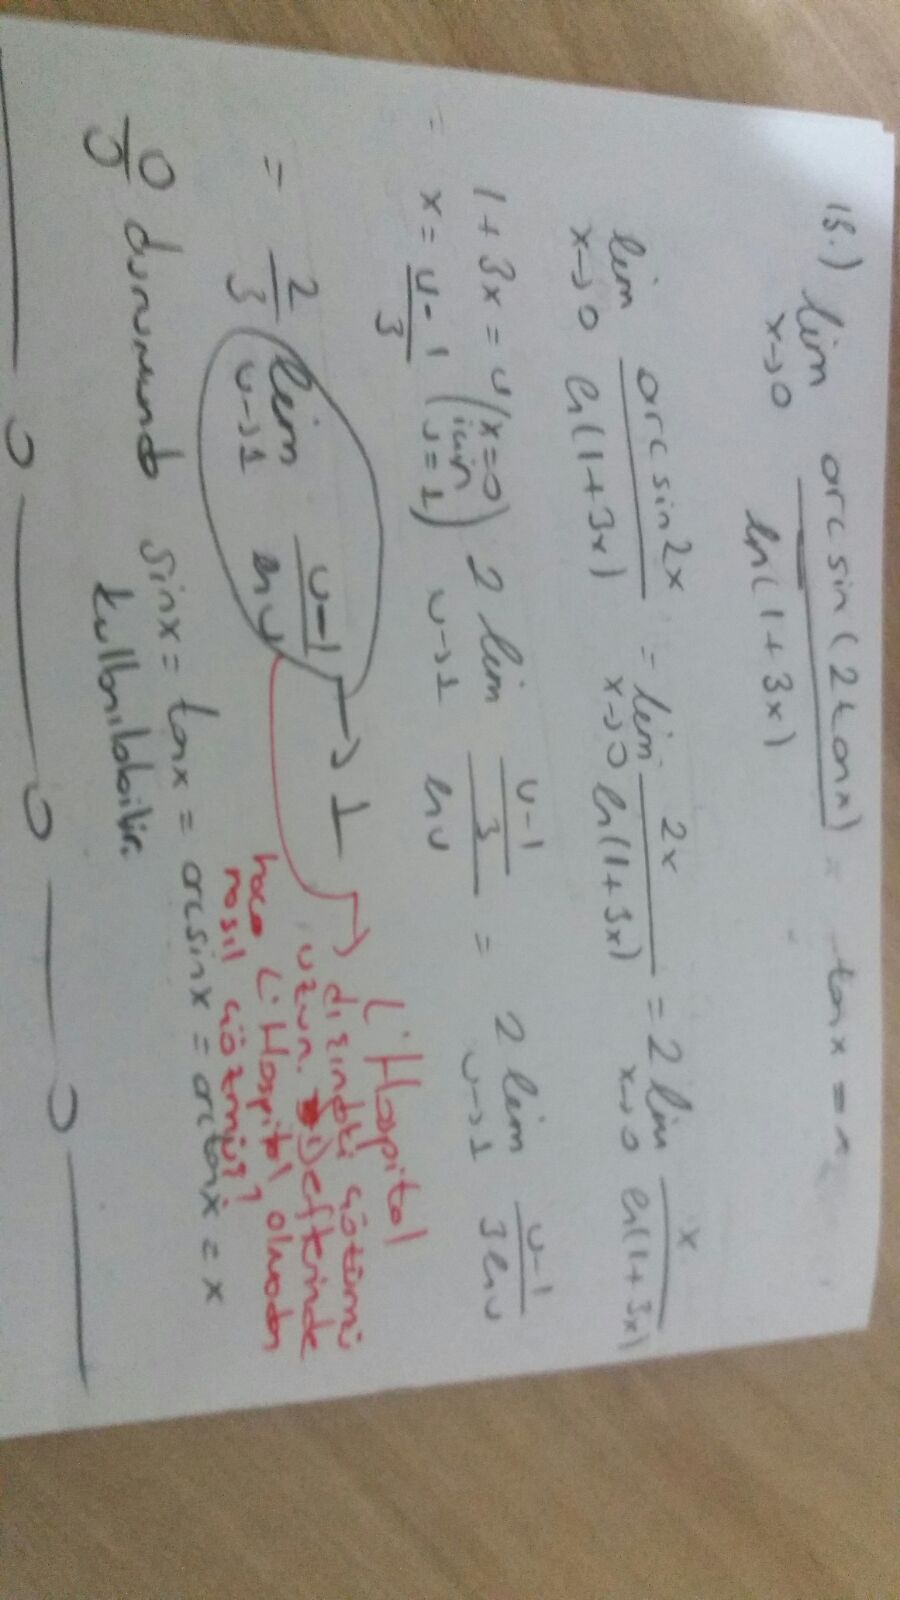 15.) lim x→0 arcsin(2tanx) / ln(1+3x) tanx = x
lim x→0 arcsin2x / ln(1+3x) = lim x→0 2x / ln(1+3x) = 2 lim x→0 x / ln(1+3x)
= 1+3x = u (x=0 için u=1) 2 lim u→1 ((u-1)/3) / lnu = 2 lim u→1 (u-1) / 3lnu
x = (u-1)/3
= 2/3 lim u→1 (u-1) / lnu → 1
→ L'Hospital
dışındaki çözümü
uzun. Defterinde
hoca L'Hospital olmadan
nasıl çözmüş?
0/0 durumunda sinx = tanx = arcsinx = arctanx = x
kullanılabilir.